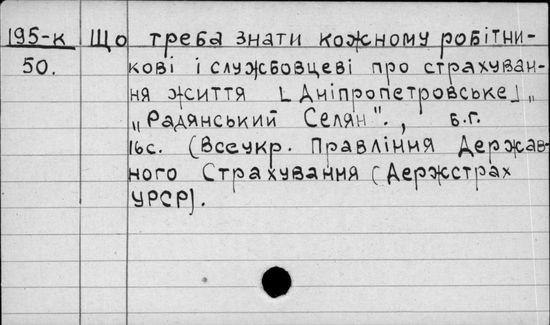 195-к Що треба знати кожному робітни-
50. кові і службовцеві про страхуван-
ня життя [Дніпропетровське] „
„Радянський Селян"., б.г.
16с. (Всеукр. Правління Держав-
ного Страхування (Держстрах
УРСР).